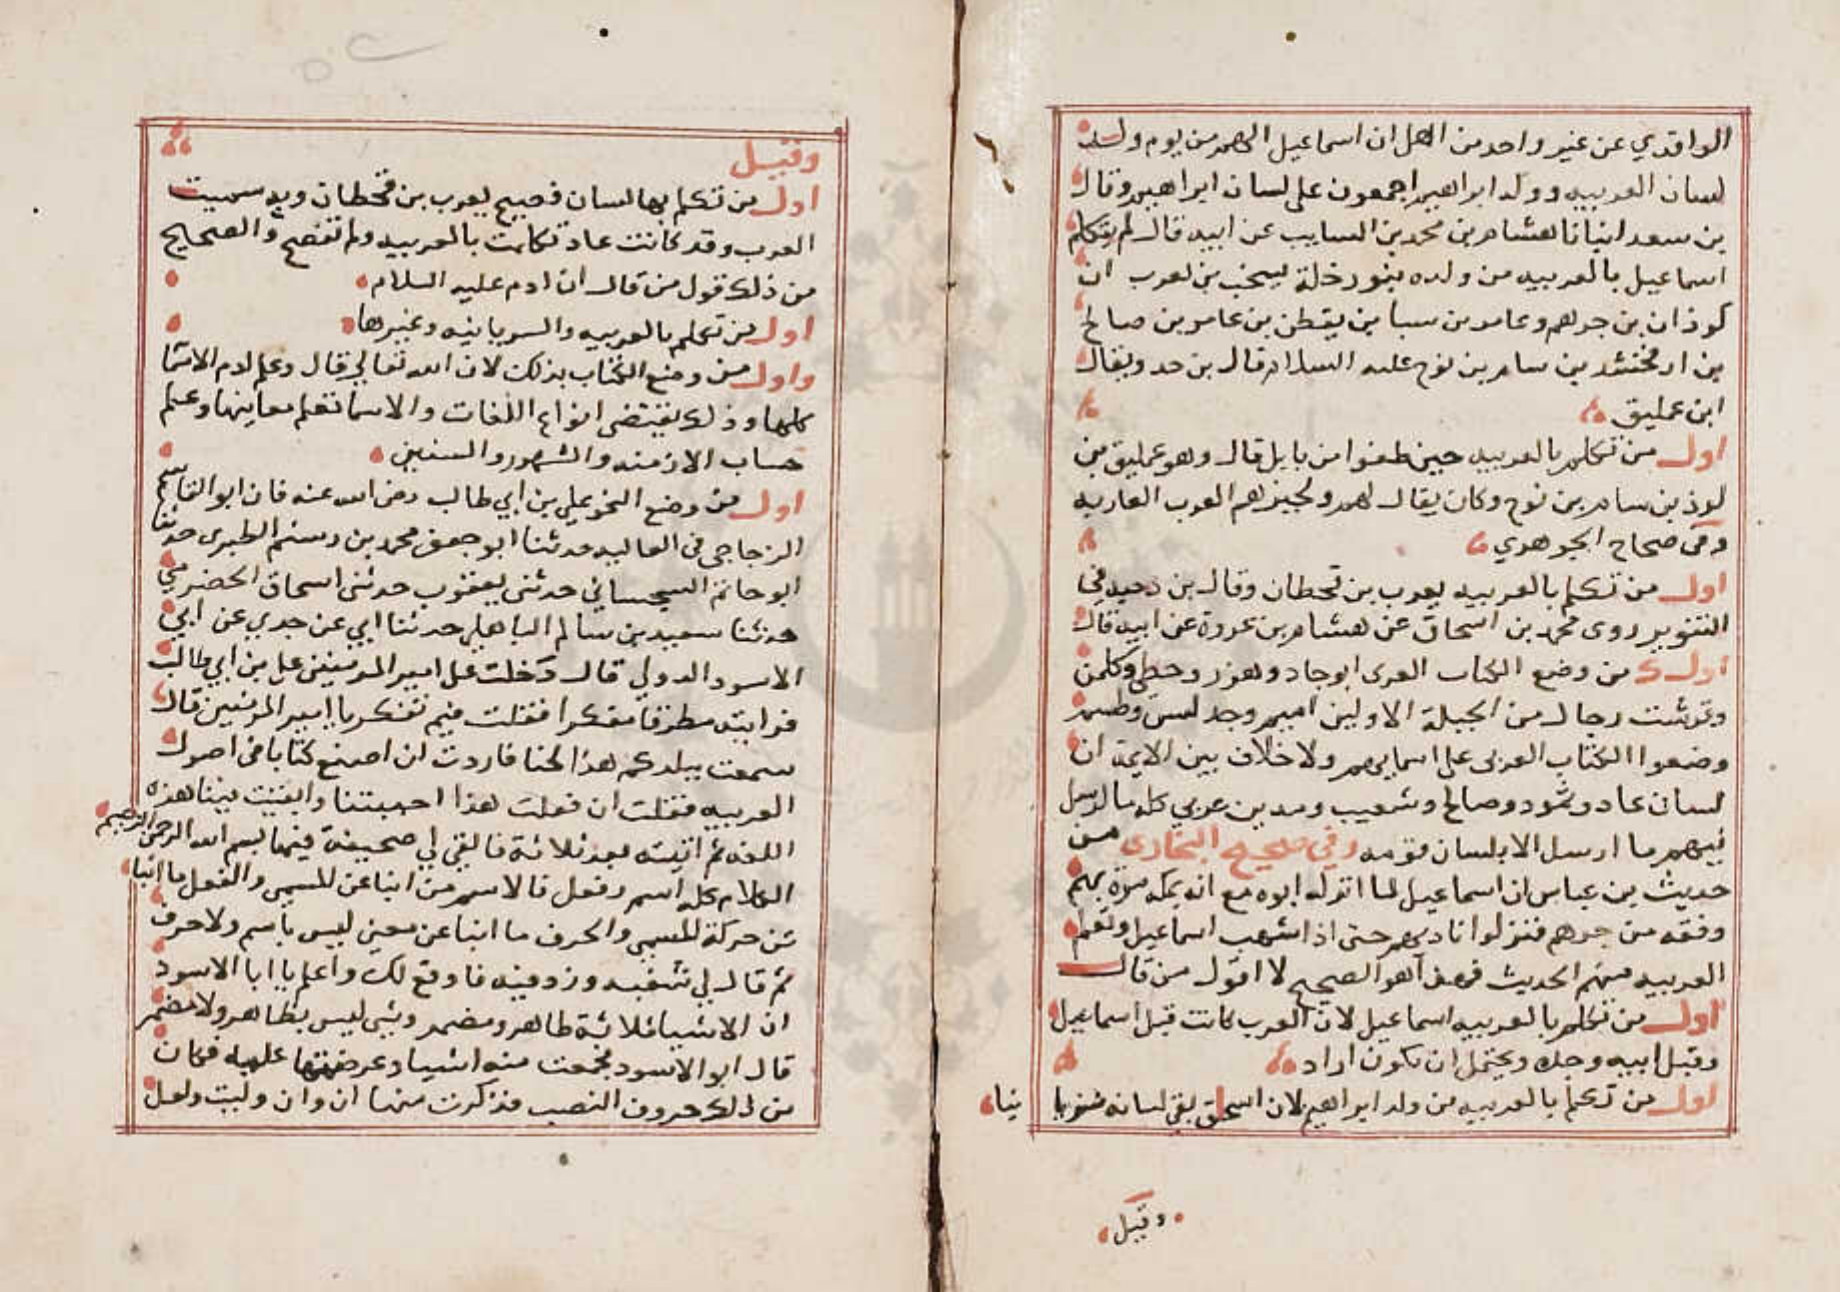 الواقدي عن غير واحد من اهل ان اسماعيل الهم من يوم ولد
لسان العربيه وولد ابراهيم اجمعون على لسان ابراهيم وقال
بن سعد انبانا هشام بن محمد بن السايب عن ابيه قال لم يتكلم
اسماعيل بالعربيه من ولده بنو رخلة يشخب بن لعرب ان
كوذان بن جرهم وعامر بن سبا بن يقطن بن عامر بن صالح
بن ارفخشد بن سام بن نوح عليه السلام قال بن سعد ويقال
ابن عمليق
اول من تكلم بالعربيه حين ظعنوا من بابل قال وهو عمليق بن
لوذ بن سام بن نوح وكان يقال لهم ولجيزهم العرب العاربه
وفي صحاح الجوهري
اول من تكلم بالعربيه يعرب بن قحطان وقال بن دحيه في
التنوير روى محمد بن اسحاق عن هشام بن عروة عن ابيه قال
اول من وضع الكتاب العربى ابوجاد وهوز وحطي وكلمن
وقرشت رجال من الجبلة الاولين اميم وجديس وطسم
وضعوا الكتاب العربى على اسمايهم ولا خلاف بين الايمة ان
لسان عاد وثمود وصالح وشعيب ومدين عربي كله ما ارسل
نبيهم ما ارسل الا بلسان قومه وفي صحيح البخارى من
حديث بن عباس ان اسماعيل لما انزله ابوه مع امه بمكه مرة بهم
وفقه من جرهم فنزلوا ناديهم حتى اذا شب اسماعيل وتعلم
العربيه منهم الحديث فهذا هو الصحيح لا اقول من قال
اول من تكلم بالعربيه اسماعيل لان العرب كانت قبل اسماعيل
وقبل ابيه وجده ويحتمل ان يكون اراد
اول من تكلم بالعربيه من ولد ابراهيم لان اسحق بقي لسانه سريا نيا
وقيل
وقيل
اول من تكلم بها لسان فصيح يعرب بن قحطان وبه سميت
العرب وقد كانت عاد تكلمت بالعربيه ولم تفصح والصحيح
من ذلك قول من قال ان ادم عليه السلام
اول من تكلم بالعربيه والسريانيه وغيرها
واول من وضع الكتاب بذلك لان الله تعالى قال وعلم ادم الاسما
كلها وذلك يقتضى انواع اللغات والاسما تعلم معاينها وعلم
حساب الازمنه والشهور والسنين
اول من وضع النحو علي بن ابي طالب رضى الله عنه فان ابو القاسم
الزجاجى فى اماليه حدثنا ابو جعفر محمد بن رستم الطبرى حدثنا
ابو حاتم السجستاني حدثنى يعقوب حدثنى اسحاق الحضرمي
حدثنا سعيد بن سالم الباهلى حدثنا ابي عن جدي عن ابي
الاسود الدولي قال دخلت على امير المومنين على بن ابي طالب
فرايته مطرقا مفكرا فقلت فيم تفكر يا امير المومنين قال
سمعت ببلدكم هذا لحنا فاردت ان اصنع كتابا فى اصول
العربيه فقلت ان فعلت هذا احييتنا وابقيت فينا هذه
اللغه ثم اتيته بعد ثلاثة فالقى لي صحيفة فيها بسم الله الرحمن الرحيم
الكلام كله اسم وفعل فالاسم من انبا عن المسمى والفعل ما انبا
عن حركة المسمى والحرف ما انبا عن معين ليس باسم ولا حرف
ثم قال لي تتبعه وزد فيه فا وقع لك واعلم يا ابا الاسود
ان الاشيا ثلاثة ظاهر ومضمر وشي ليس بظاهر ولا مضمر
قال ابو الاسود فجمعت منه اشيا وعرضتها عليه فكان
من ذلك حروف النصب فذكرت منها ان وان وليت ولعل